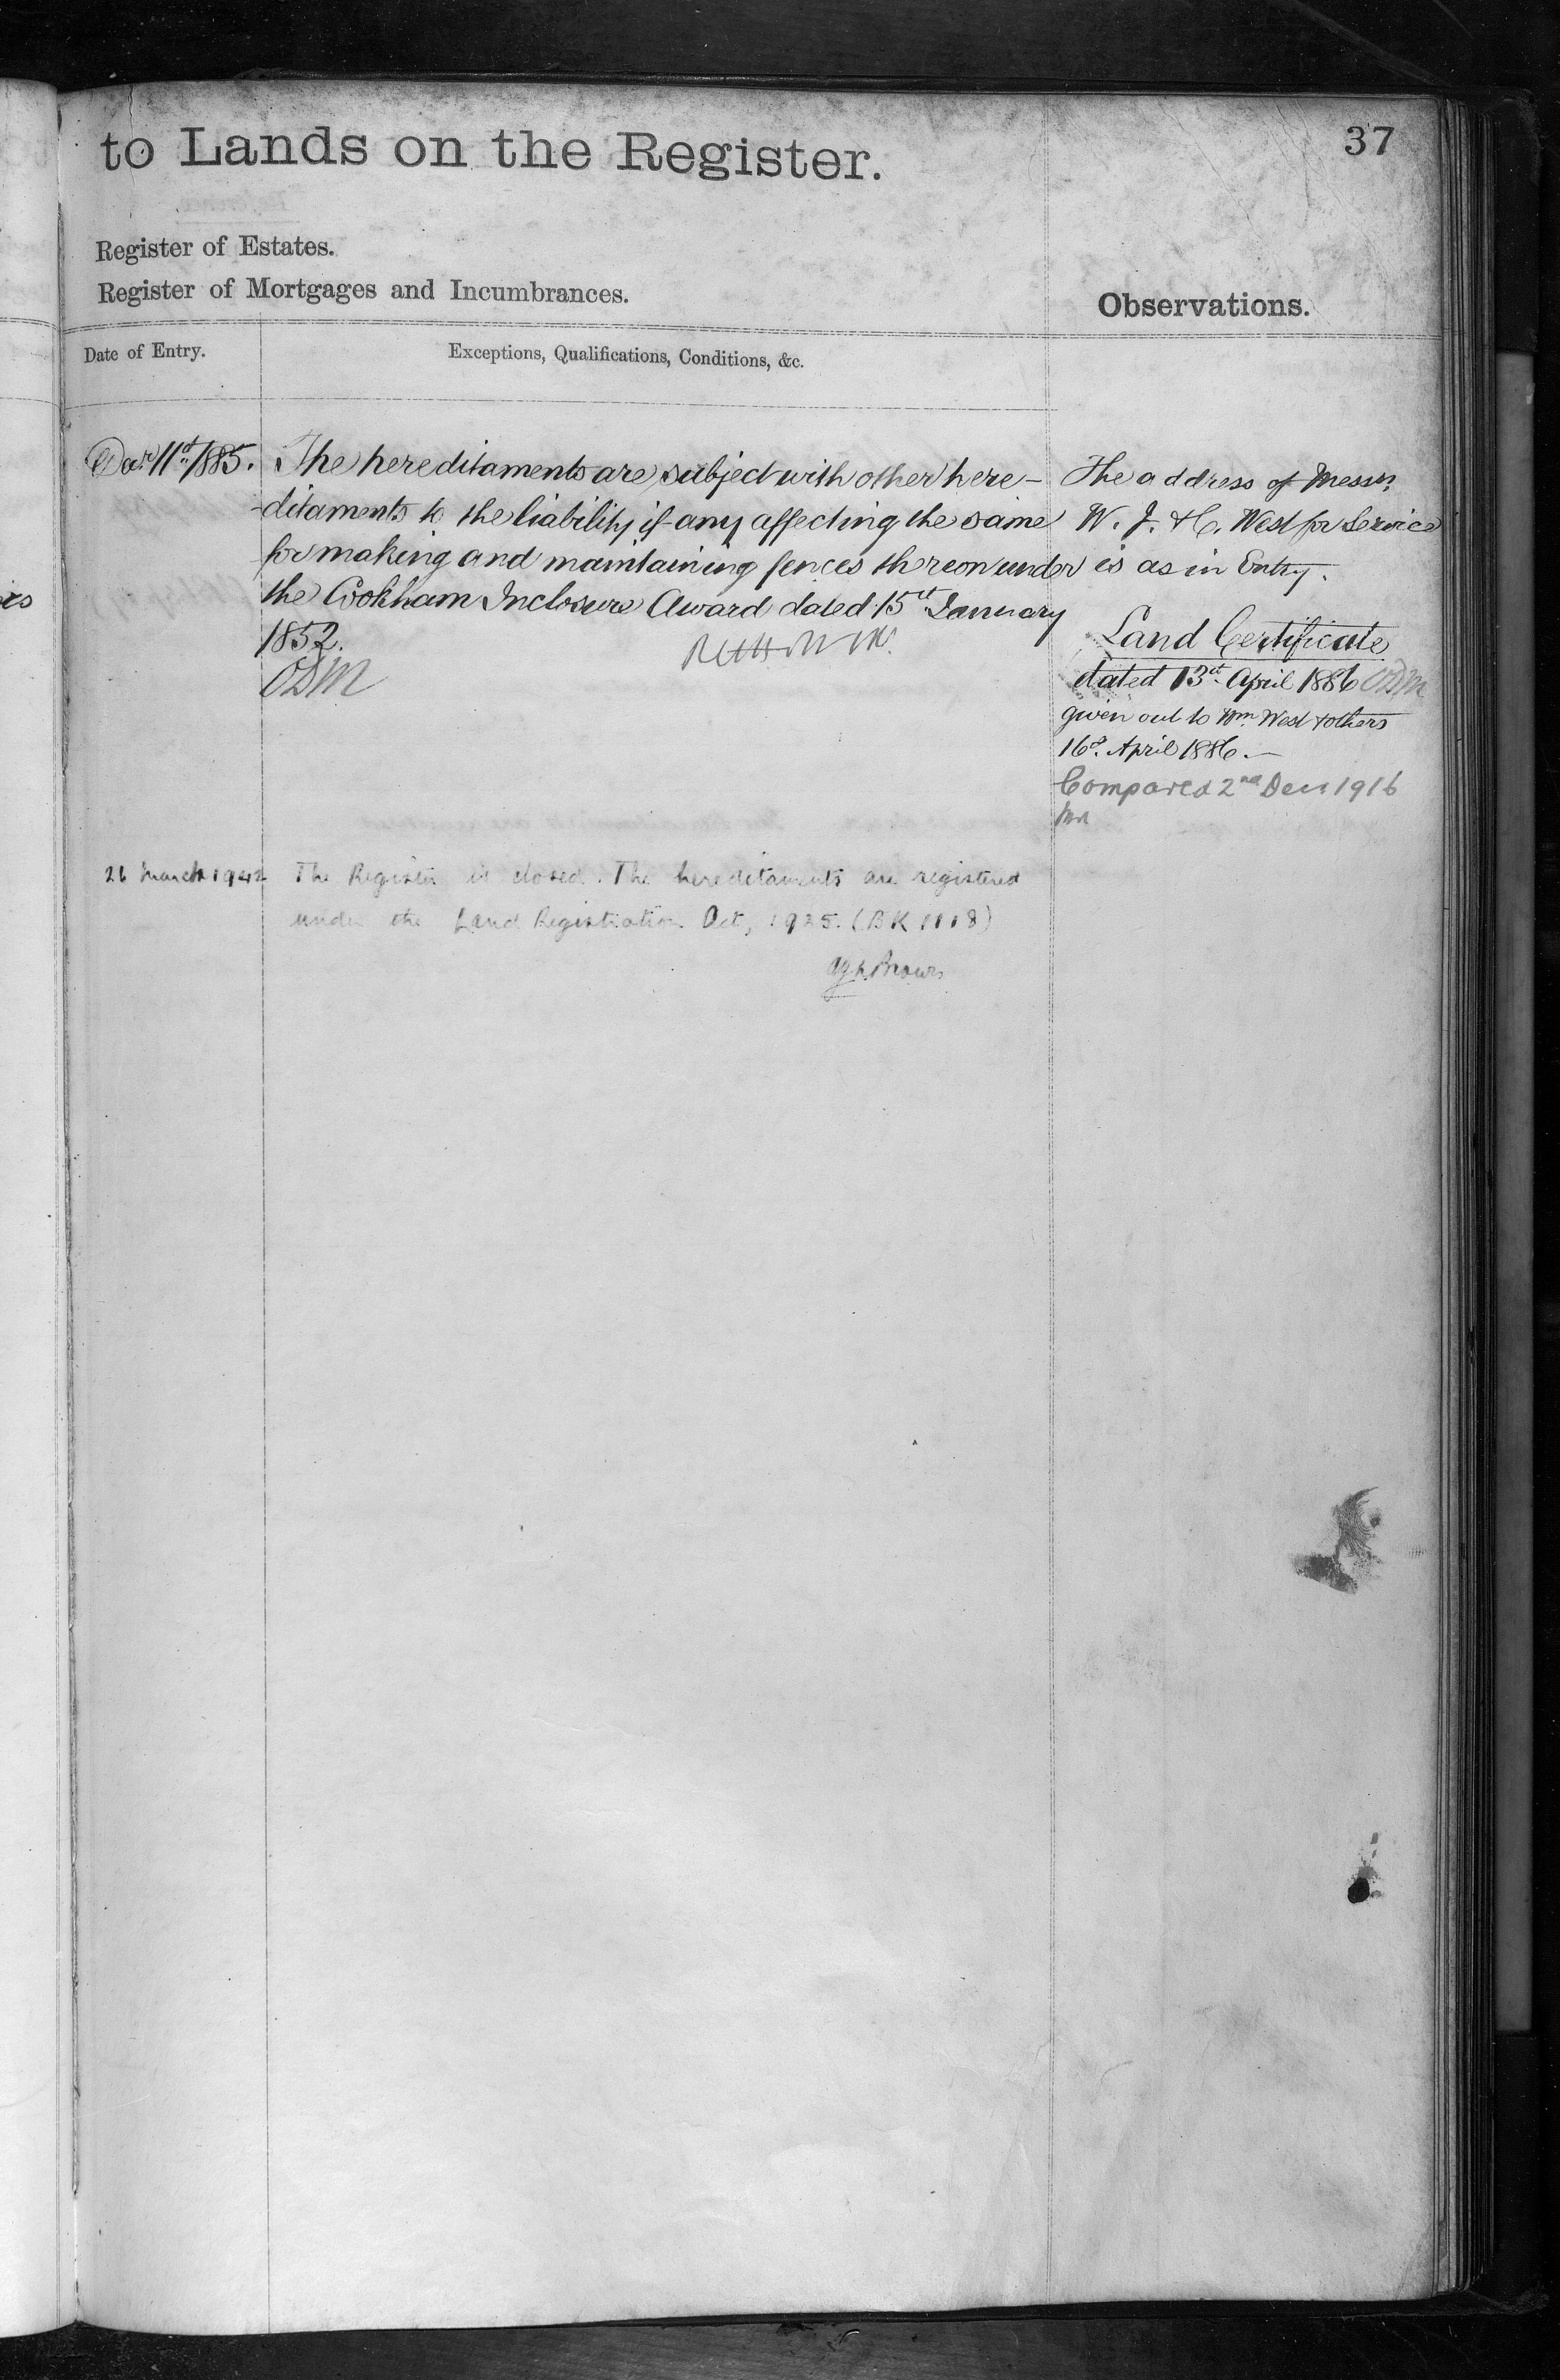 to Lands on the Register.
37
Register of Estates.
Register of Mortgages and Incumbrances.
Observations.
Date of Entry.
Exceptions, Qualifications, Conditions, &c.
11th 1885.
The hereditaments are subject with other here-
-ditaments to the liability if any affecting the same
for making and maintaining fences thereon under
the Cookham Inclosure Award dated 15th January
1852.
ODM
The address of Messrs.
W. J. & C. West for Service
is as in Entry.
Land Certificate
dated 13th April 1886 ODM
given out to Wm. West & others
16th. April 1886.—
Compared 2nd Decr 1916
26 March 1942
The Register is closed. The hereditaments are registered
under the Land Registration Act, 1925. (BK 1118)